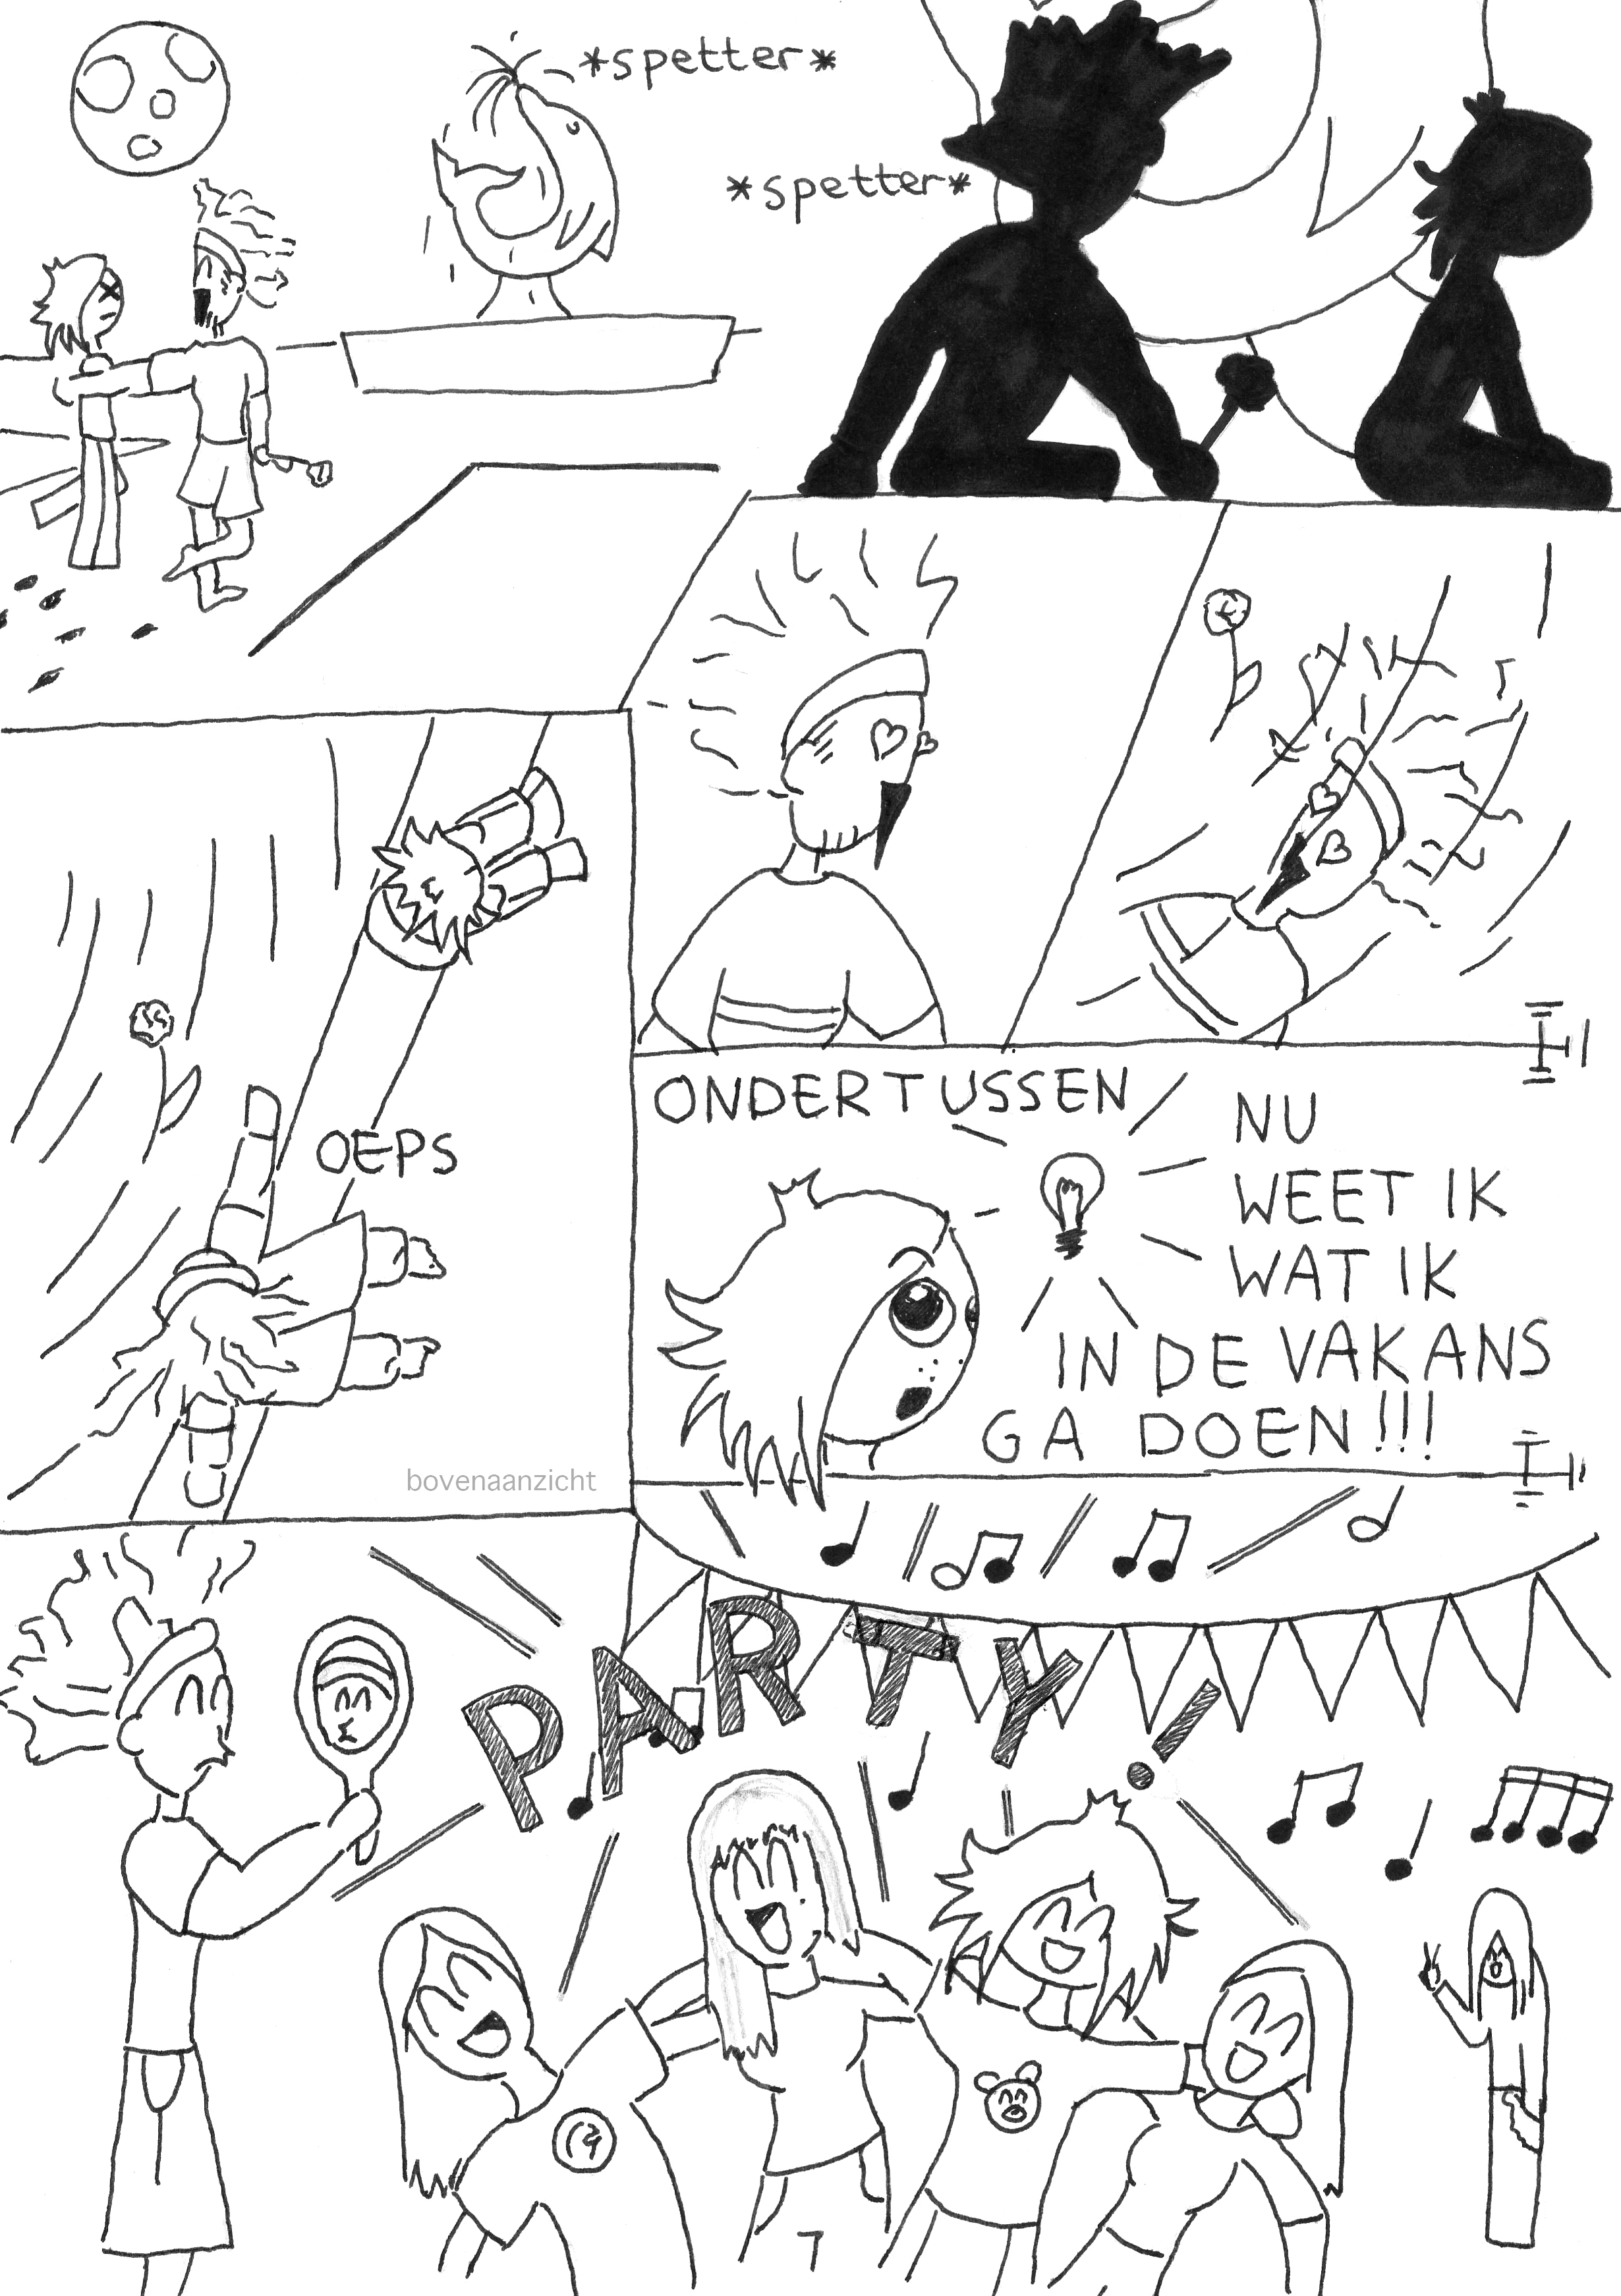 *spetter*
*spetter*
OEPS
bovenaanzicht
ONDERTUSSEN
NU
WEET IK
WAT IK
IN DE VAKANS
GA DOEN!!!
PARTY!
7